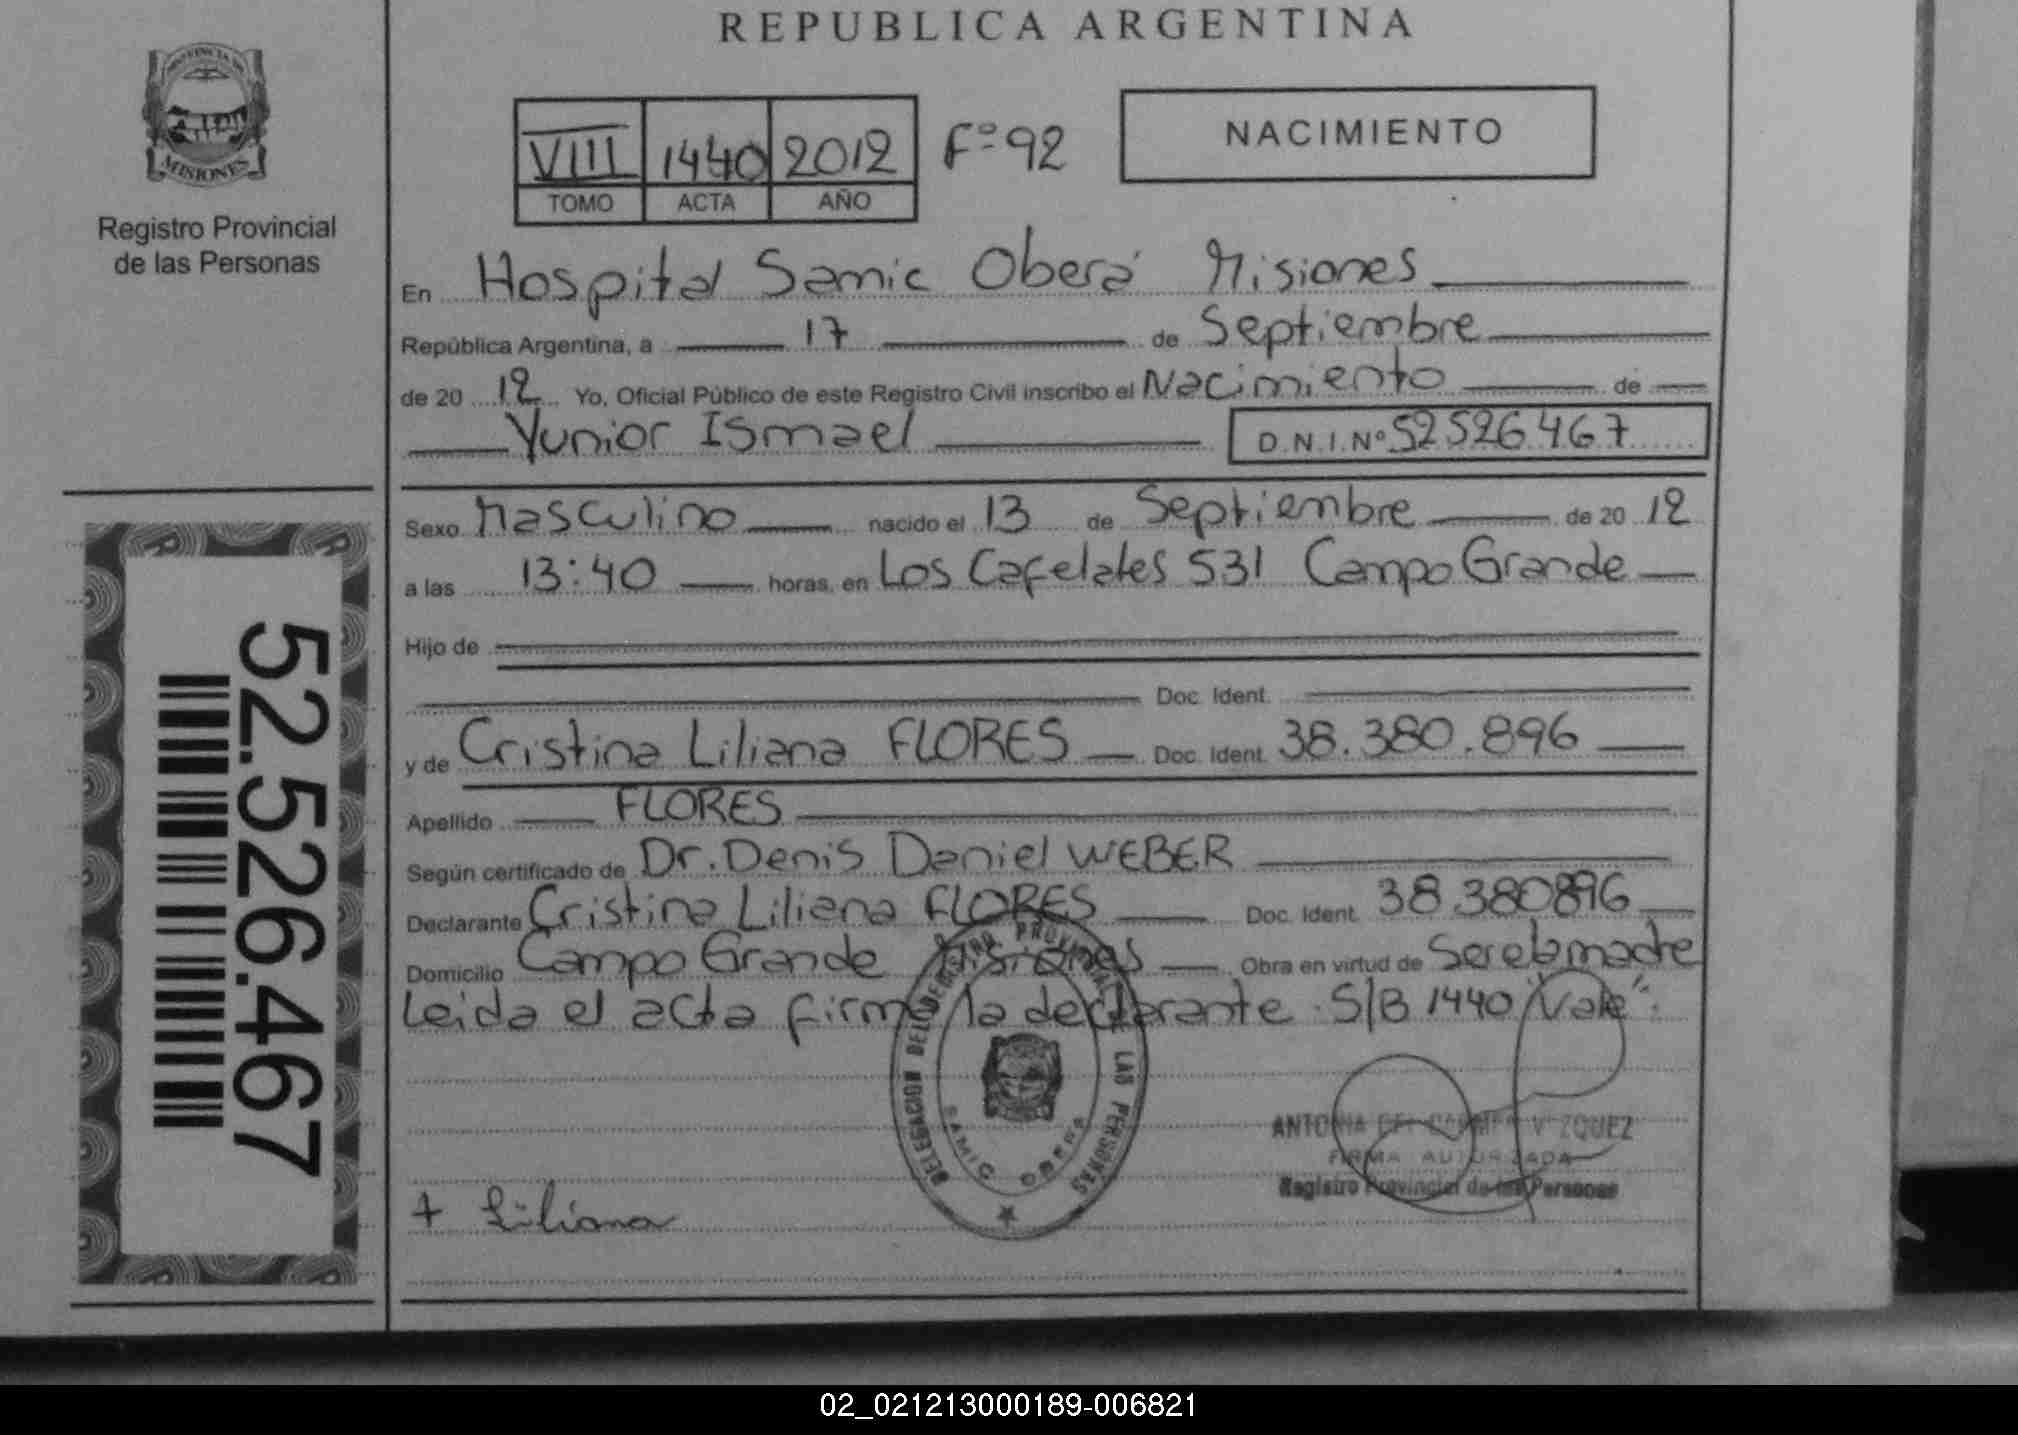 REPUBLICA ARGENTINA
PROVINCIA DE
MISIONES
Registro Provincial
de las Personas
VIII 1440 2012 Fº 92
TOMO ACTA AÑO
NACIMIENTO
En Hospital Samic Oberá Misiones
República Argentina, a 17 de Septiembre
de 20 12 Yo, Oficial Público de este Registro Civil inscribo el Nacimiento de
Yunior Ismael D.N.I.Nº 52526467
Sexo Masculino nacido el 13 de Septiembre de 20 12
a las 13:40 horas, en Los Cafetales 531 Campo Grande
Hijo de
Doc. Ident.
y de Cristina Liliana FLORES Doc. Ident. 38.380.896
Apellido FLORES
Según certificado de Dr. Denis Daniel WEBER
Declarante Cristina Liliana FLORES Doc. Ident. 38.380896
Domicilio Campo Grande Misiones Obra en virtud de Ser la madre
Leida el acta firma la declarante. S/B 1440 "Vale".
DELEGACION DEL REGISTRO PROVINCIAL DE LAS PERSONAS
SAMIC OBERA
ANTONIA DEL CARMEN VAZQUEZ
FIRMA AUTORIZADA
Registro Provincial de las Personas
Liliana
52.526.467
02_021213000189-006821